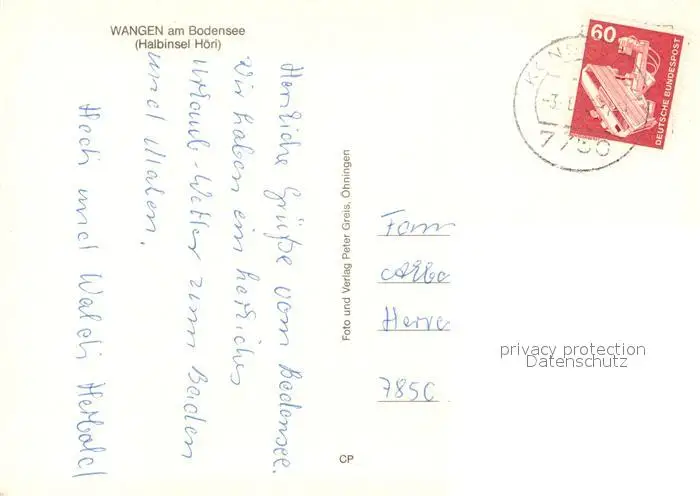 WANGEN am Bodensee
(Halbinsel Höri)
Herzliche Grüße vom Bodensee.
Wir haben ein herrliches
Urlaub-Wetter zum Baden
und Malen.
Hedi und Waldi Herbold
Foto und Verlag Peter Greis, Öhningen
CP
60
DEUTSCHE BUNDESPOST
7750
Fam
Herre
7850
privacy protection
Datenschutz